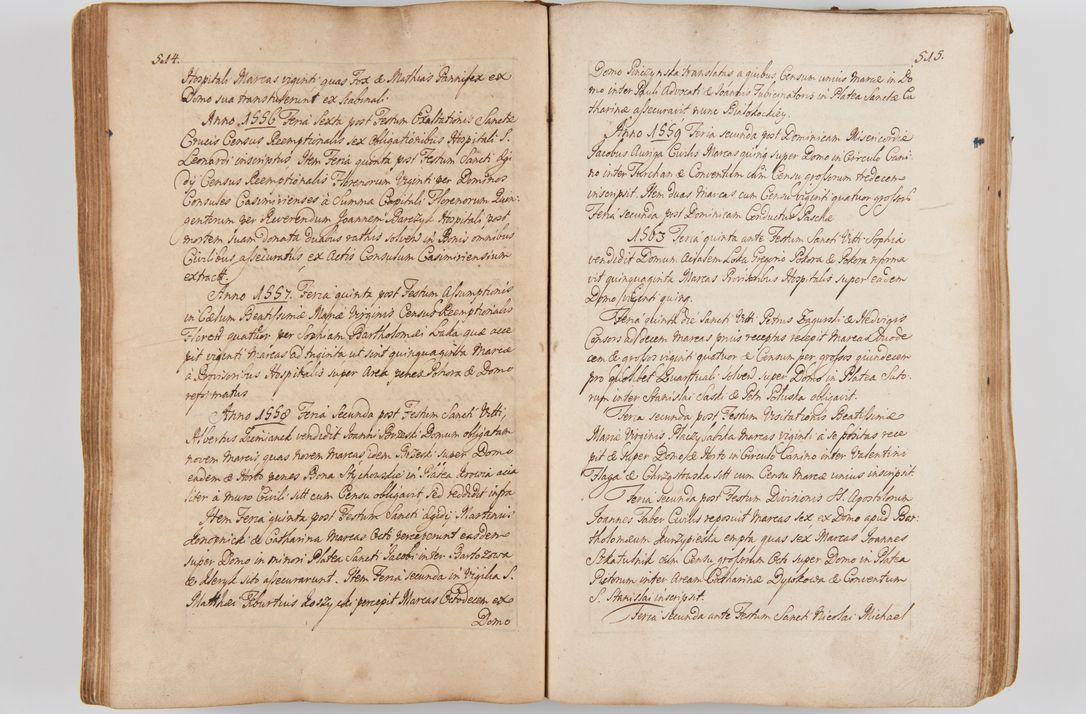 514.
Hospitali Marcas viginti quas Fox & Mathias Pannifex ex
Domo sua transtulerunt ex Scabinali
Anno 1556 Feria Sexta post Festum Exaltationis Sanctæ
Crucis Census Reemptionalis Sex Obligationibus Hospitali S.
Leonardi inscriptus Item Feria quinta post Festum Sancti Egi
dij Census Reemptionalis Florenorum Viginti per Dominos
Consules Casimirienses à Summa Capitali Florenorum Quin
gentorum per Reverendum Joannem Barczyk Hospitali post
mortem suam donata duabus rathis solven in Bonis omnibus
Civilibus assecuratus ex Actis Consulum Casimiriensium
extract.
Anno 1557. Feria quinta post Festum Assumptionis
in Cælum Beatissimæ Mariæ Virginis Census Reemptionalis
Floren quatuor per Sophiam Bartholomæi Lada quæ acce
pit viginti Marcas ad triginta ut sint quinquaginta Marcæ
à Provisoribus Hospitalis super Area penes Pohora & Domo
reformatus
Anno 1558 Feria Secunda post Festum Sancti Viti
Albertus Ziemianek vendidit Joanni Brzeski Domum obligatam
novem Marcis quas novem Marcas idem Brzeski super Domo
eadem & Horto penes Bona Stychowskie in Platea
liter à muro Civili sitt cum Censu obligavit Sed reddidit infra
Item Feria quinta post Festum Sancti Egidij Martinus
& Catharina Marcas Octo perceperunt easdem
super Domo in minori Platea Sancti Jacobi inter
& sito assecurarunt. Item Feria secunda in Vigilia S.
Matthæi Tiburtius percepit Marcas Octodecem ex
Domo
515.
Domo translatas a quibus Censum unius Marcæ in Do
mo inter Pauli Advocati & Joannis Tubicinatoris in Platea Sanctæ Ca
tharinæ assecuravit nunc
Anno 1559 Feria secunda post Dominicam Misericordiæ
Jacobus Auriga Civilis Marcas quinq super Domo in Circulo Cani
no inter & Conventum cum Censu grossorum tredecem
inscripsit Item duas Marcas cum Censu viginti quatuor grossor
Feria Secunda post Dominicam Conductus Paschæ
1563 Feria quinta ante Festum Sancti Viti Sophia
vendidit Domum Lada Gregorio Pohora & Pohora
vit quinquaginta Marcas Provisoribus Hospitalis super eadem
Domo viginti quinq.
Feria quinta die Sancti Viti Petrus Zagurski & Hedvigis
Consors ad decem Marcas prius receptas recepit Marcas Duode
cem & grossos viginti quatuor & Censum per grossos quindecem
pro quolibet Quartuali solven super Domo in Platea Suto
rum inter Stanislai Saski & Petri obligavit.
Feria secunda post Festum Visitationis Beatissimæ
Mariæ Virginis Marcas viginti à se positas rece
pit & super Domo & Horto in Circulo Canino inter Valentini
Flaga & sitt cum Censu Marcæ unius inscripsit
Feria Secunda post Festum Divisionis SS. Apostolorum
Joannes Faber Civilis reposuit Marcas sex ex Domo apud Bar
tholomæum empta quas sex Marcas Joannes
cum Censu grossorum Octo super Domo in Platea
Pistorum inter Aream Catharinæ & Conventum
S. Stanislai inscripsit.
Feria Secunda ante Festum Sancti Nicolai Michael